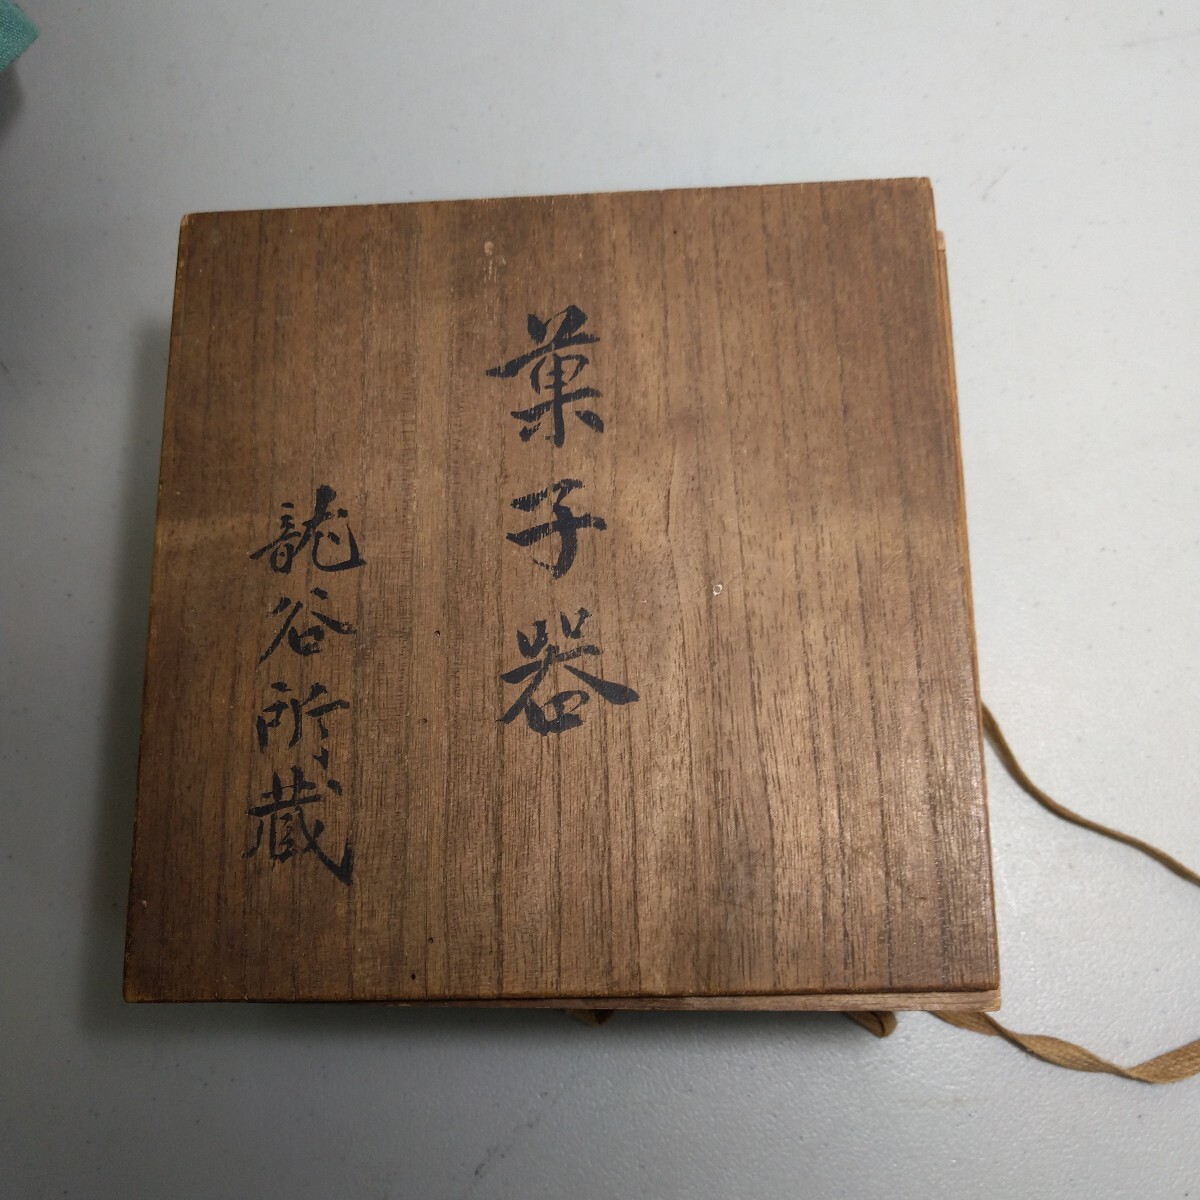 菓子器
龍谷所蔵